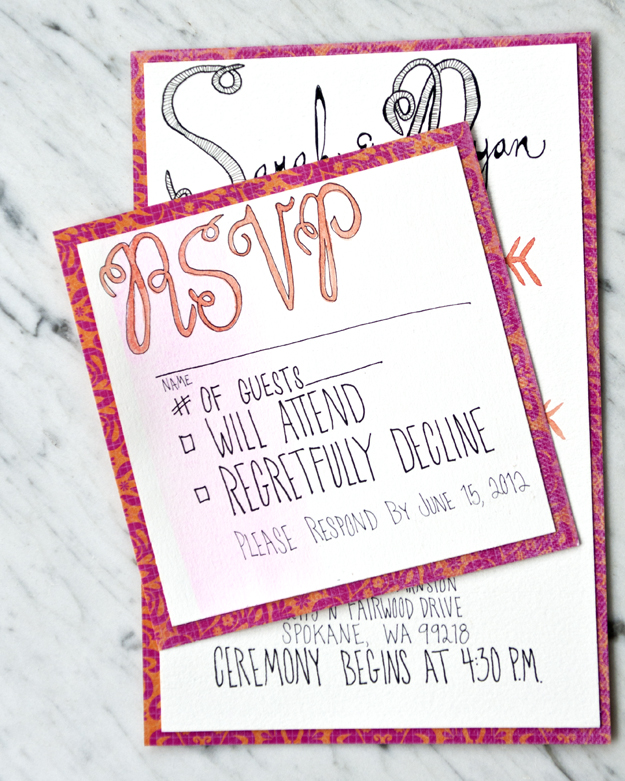 Sarah & Ryan
RSVP
NAME
# OF GUESTS
WILL ATTEND
REGRETFULLY DECLINE
PLEASE RESPOND BY JUNE 15, 2012
N FAIRWOOD DRIVE
SPOKANE, WA 99218
CEREMONY BEGINS AT 4:30 P.M.